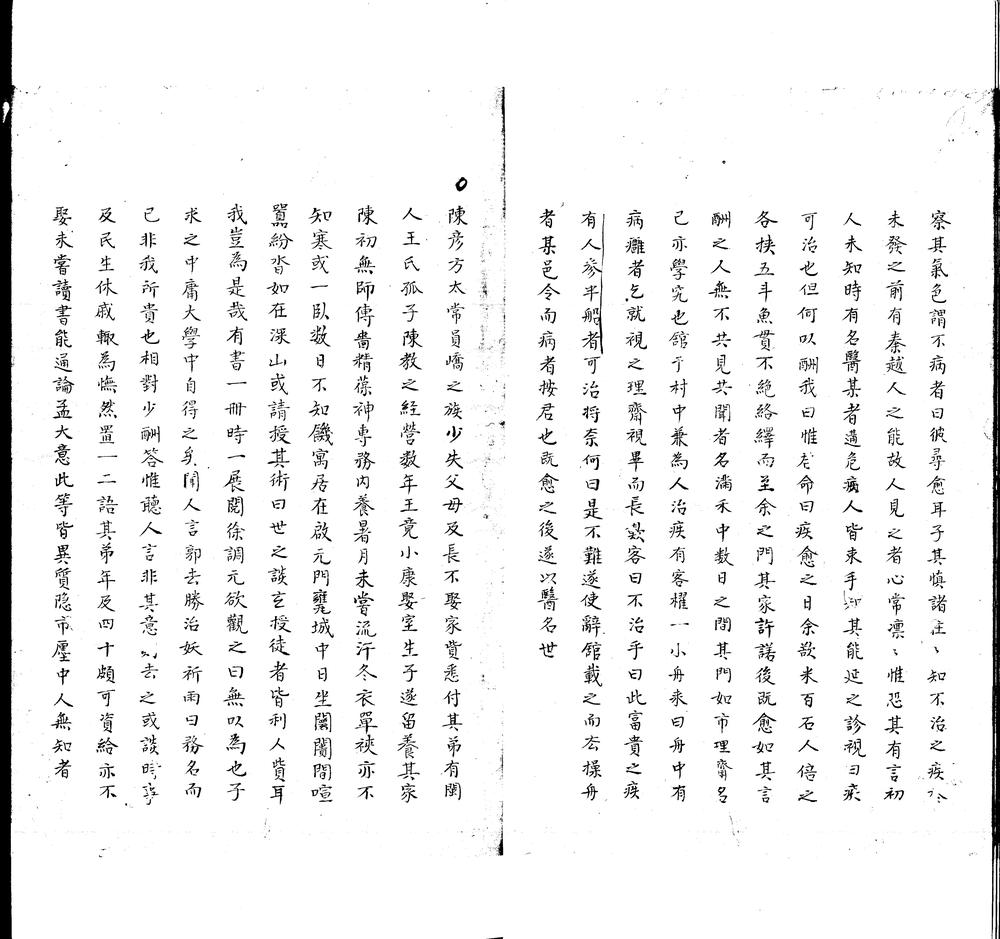 察其氣色謂不病者曰彼尋愈耳子其慎諸往、知不治之疾於
未發之前有秦越人之能故人見之者心常凛、惟恐其有言初
人未知時有名醫某者遘危痾人皆束手知其能延之診視曰疾
可治也但何以酬我曰惟老命曰疾愈之日余欲米百石人倍之
各挟五斗魚貫不絶絡繹而至余之門其家許諾後既愈如其言
酬之人無不共見共聞者名滿禾中数日之間其門如市理齋名
已亦學究也館于村中兼為人治疾有客櫂一小舟来曰舟中有
病癰者乞就視之理齋視畢而長歎客曰不治乎曰此富貴之疾
有人參半船者可治将奈何曰是不難遂使辭館載之而去操舟
者某邑令而病者按君也既愈之後遂以醫名世
陳彦方太常員嶠之族少失父母及長不娶家貲悉付其弟有閩
人王氏孤子陳教之経營数年王竟小康娶室生子遂留養其家
陳初無師傳嗇精葆神專務内養暑月未嘗流汗冬衣單裌亦不
知寒或一卧数日不知饑寓居在啟元門甕城中日坐闤闠間喧
囂紛沓如在深山或請授其術曰世之談玄授徒者皆利人貲耳
我豈為是哉有書一冊時一展閲徐調元欲觀之曰無以為也子
求之中庸大學中自得之矣聞人言郭去勝治妖祈雨曰務名而
已非我所貴也相對少酬答惟聽人言非其意則去之或談時事
及民生休戚輙為憮然置一二語其弟年及四十頗可資給亦不
娶未嘗讀書能通論孟大意此等皆異質隐市廛中人無知者